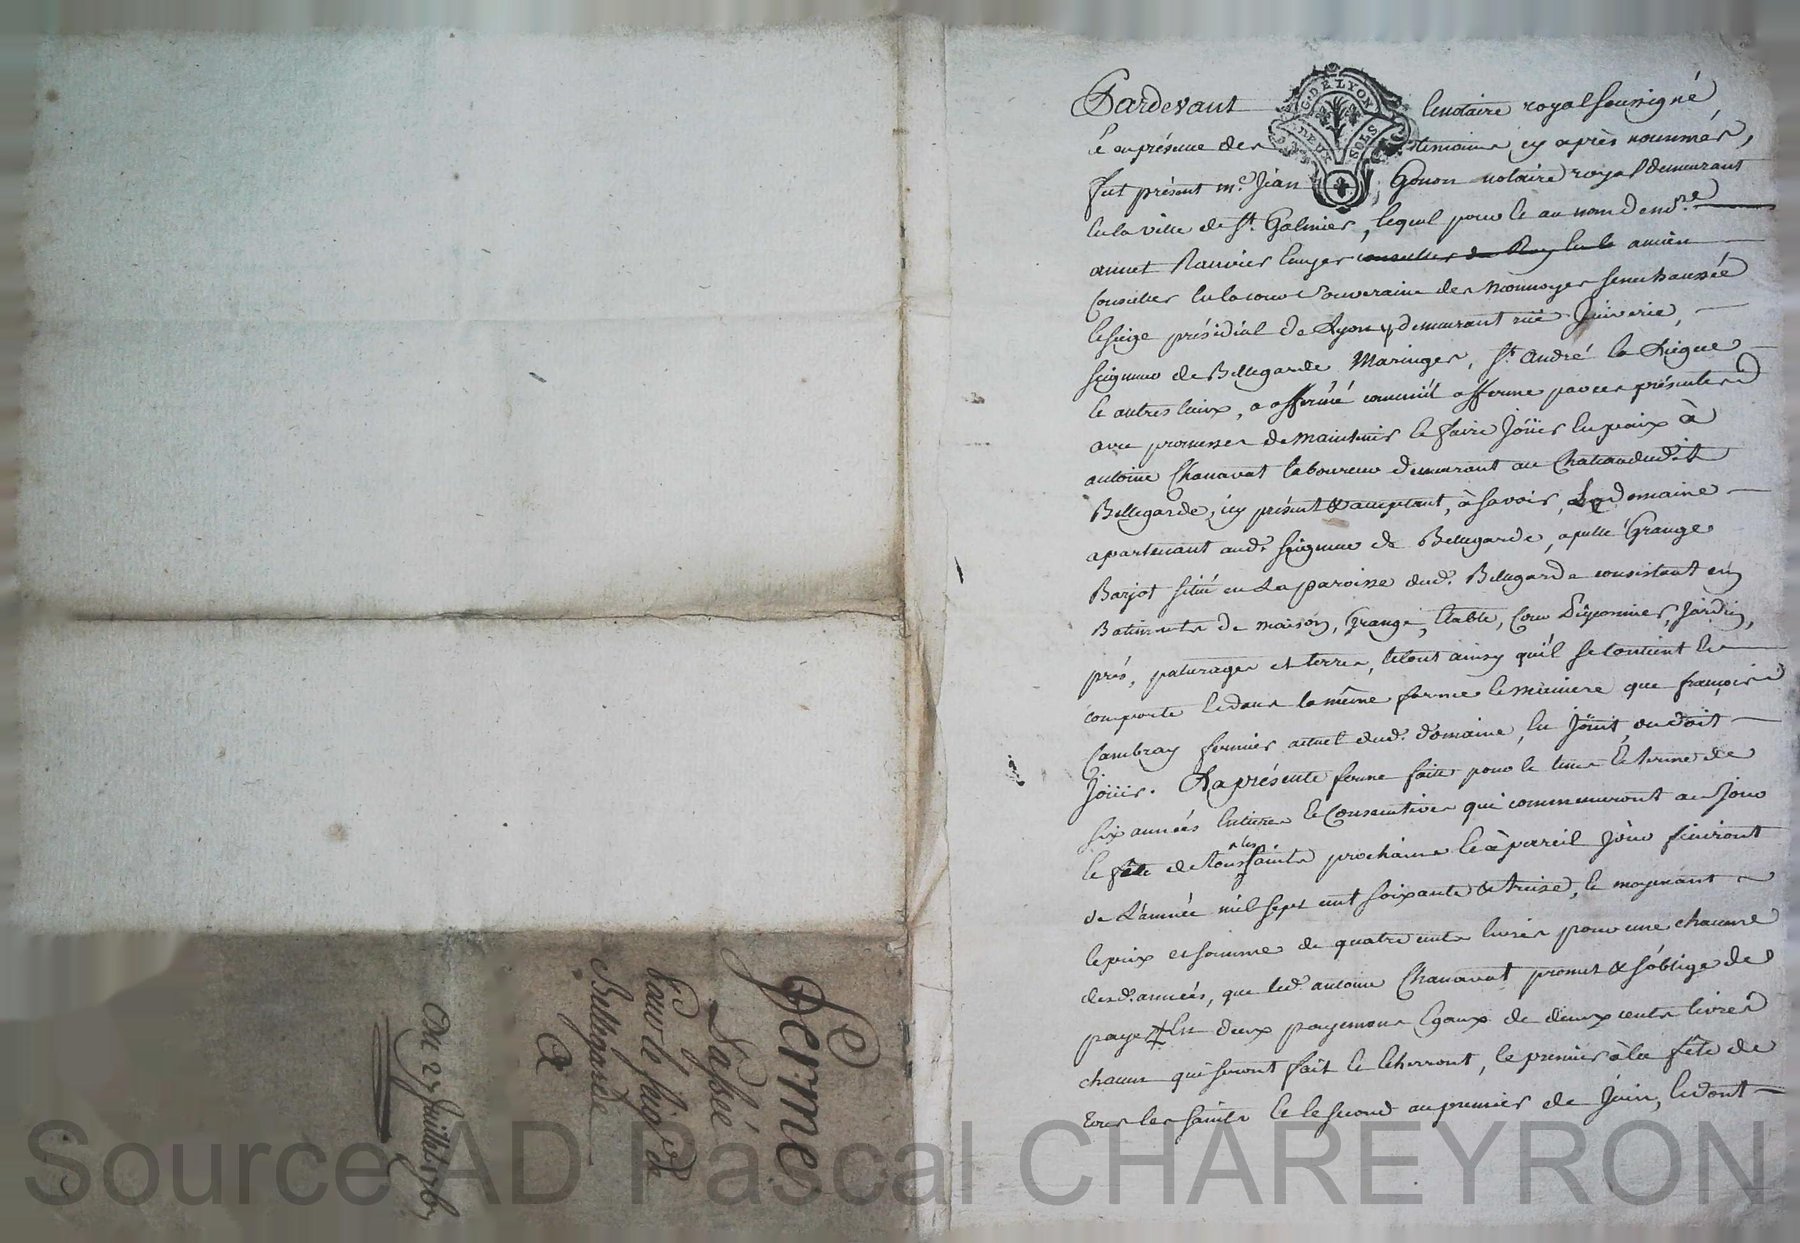 Ferme
Passée
Pour le seig.r de
Bellegarde
A
Du 25 Juillet 176
Pardevant le notaire royal soussigné
G. DE LYON
DEUX SOLS
Et en présence des temoins cy après nommés,
fut présent m.e Jean Gonon notaire royal demeurant
en la ville de S.t Galmier, lequel pour et au nom de m.re
annet Ranvier Ecuyer conseiller du Roy en la ancien
Conseiller en la cour Souveraine des Monnoyes senechaussée
et siege présidial de Lyon y demeurant rüe Juiverie,
seigneur de Bellegarde Maringes, S.t André la Liegue
et autres lieux, a affermé comme il afferme par ces présentes
avec promesse de maintenir et faire Joüir en paix à
antoine Chanavat laboureur demeurant au Chateau dudit
Bellegarde, icy présent & acceptant, à savoir, Le domaine
apartenant aud. seigneur de Bellegarde, apellé Grange
Barjot situé en La paroisse dud. Bellegarde consistant en
Batiments de maison, Grange, Etable, Cour Aysances, Jardin,
prés, paturages et terres, le tout ainsy qu'il se contient et
comporte et dans la même forme et maniere que françois
Cambray fermier actuel dud. domaine, en Joüit, ou doit
Joüir. La présente ferme faite pour le tems et terme de
six années entieres et Consecutives qui commenceront au Jour
et fête de Tous les saints prochaine et à pareil Jour finiront
de L'année mil sept cent soixante & treize, et moyenant
le prix et somme de quatre cents livres pour une chacune
desd. années, que led. antoine Chanavat promet & s'oblige de
payer En deux payemens Egaux de deux cents livres
chacun qui seront fait et Echerront, le premier à la fête de
Tous les saints et le second au premier de Juin, Et dont
Source AD Pascal CHAREYRON